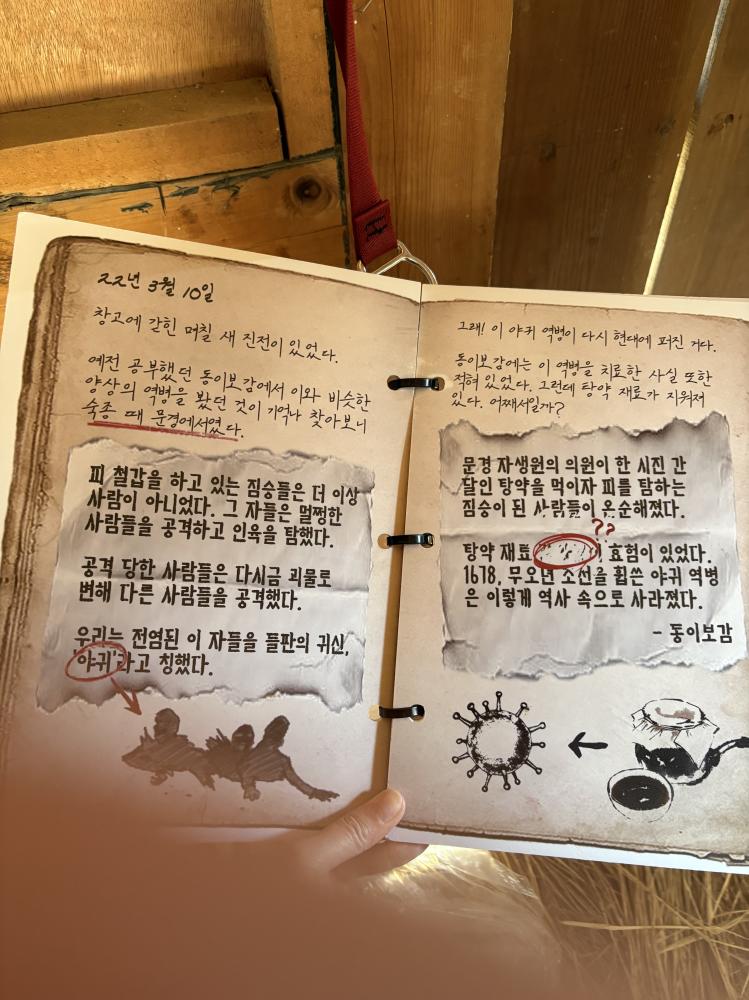 22년 3월 10일
창고에 갇힌 며칠 새 진전이 있었다.
예전 공부했던 동이보감에서 이와 비슷한
양상의 역병을 봤던 것이 기억나 찾아보니
숙종 때 문경에서였다.
피 철갑을 하고 있는 짐승들은 더 이상
사람이 아니었다. 그 자들은 멀쩡한
사람들을 공격하고 인육을 탐했다.
공격 당한 사람들은 다시금 괴물로
변해 다른 사람들을 공격했다.
우리는 전염된 이 자들을 들판의 귀신,
'야귀'라고 칭했다.
그래! 이 야귀 역병이 다시 현대에 퍼진 거다.
동이보감에는 이 역병을 치료한 사실 또한
적혀 있었다. 그런데 탕약 재료가 지워져
있다. 어째서일까?
문경 자생원의 의원이 한 시진 간
달인 탕약을 먹이자 피를 탐하는
짐승이 된 사람들이 온순해졌다.
??
탕약 재료 효험이 있었다.
1678, 무오년 조선을 휩쓴 야귀 역병
은 이렇게 역사 속으로 사라졌다.
- 동이보감